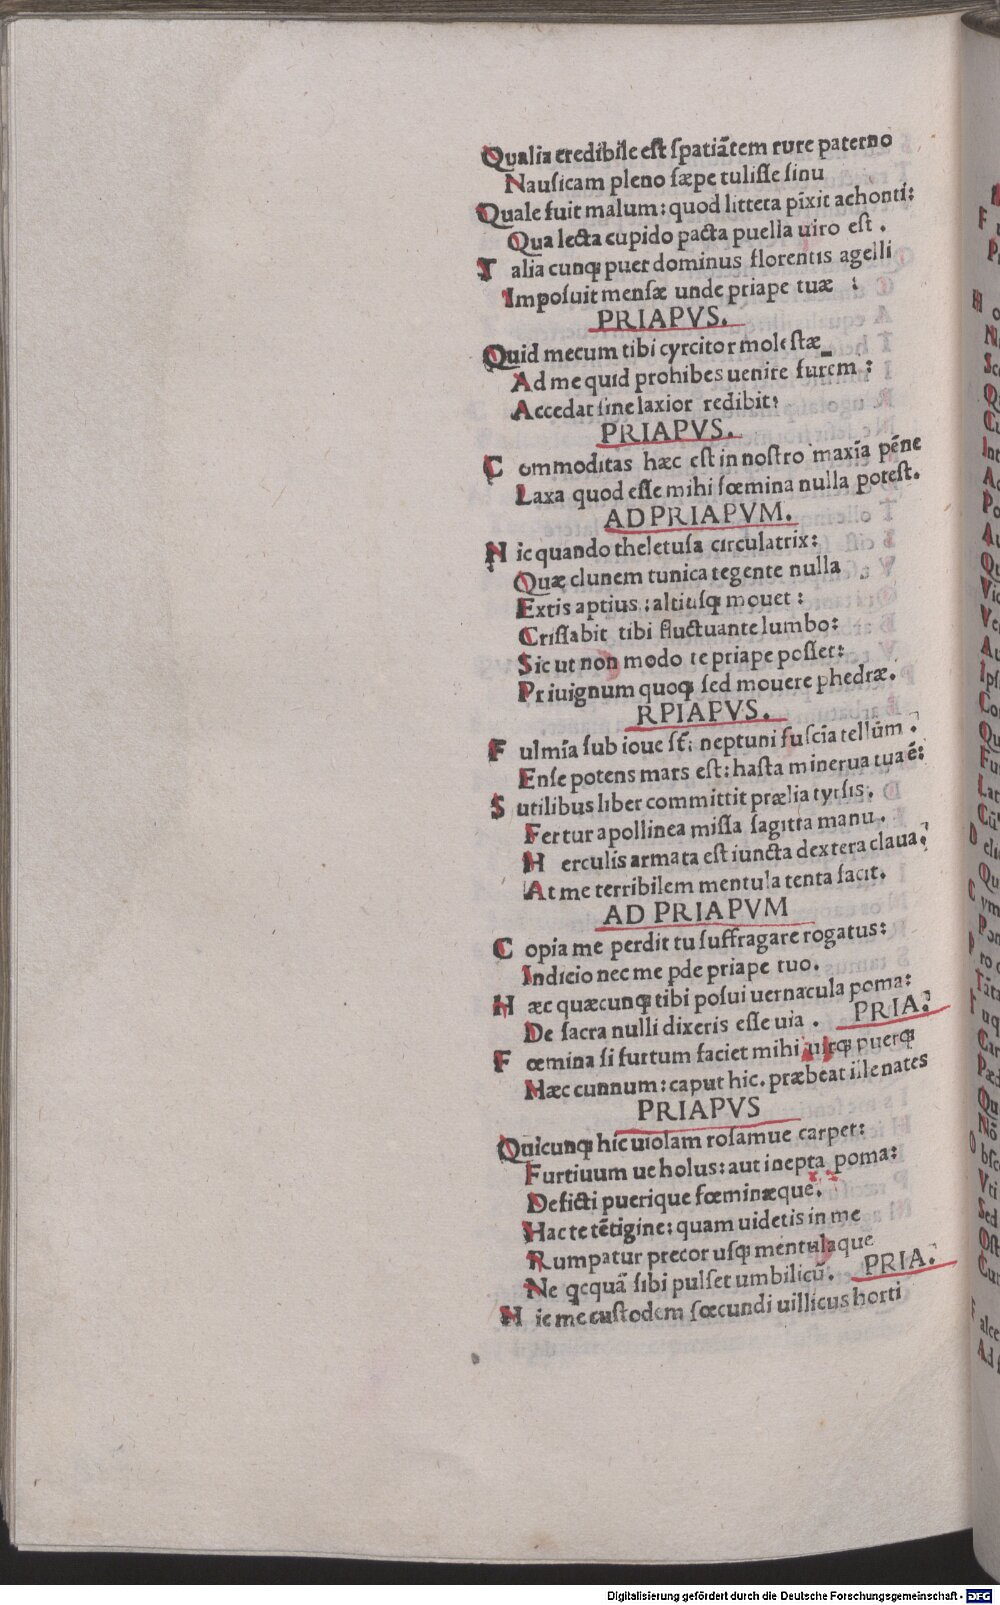 Qualia credibile eſt ſpatiãtem rure paterno
Nauſicam pleno ſæpe tuliſſe ſinu
Quale fuit malum: quod littera pĩxit achonti:
Qua lecta cupido pacta puella uiro eſt.
Talia cunqꝫ puer dominus florentis agelli
Impoſuit menſæ unde priape tuæ :
PRIAPVS.
Quid mecum tibi cyrcitor moleſtæ
Ad me quid prohibes uenire furem :
Accedat ſine laxior redibit:
PRIAPVS.
Commoditas hæc eſt in noſtro maxĩa pẽne
Laxa quod eſſe mihi fœmina nulla poteſt.
AD PRIAPVM.
Hic quando theletuſa circulatrix:
Quæ clunem tunica tegente nulla
Extis aptius : altiuſqꝫ mouet :
Criſſabit tibi fluctuante lumbo:
Sic ut non modo te priape poſſet:
Priuignum quoqꝫ ſed mouere phedræ.
RPIAPVS.
Fulmĩa ſub ioue ſt̃: neptuni fuſcĩa tellũm.
Enſe potens mars eſt: haſta minerua tua ẽ:
Sutilibus liber committit prælia tyrſis.
Fertur apollinea miſſa ſagitta manu.
Herculis armata eſt iuncta dextera claua.
At me terribilem mentula tenta facit.
AD PRIAPVM
Copia me perdit tu ſuffragare rogatus:
Indicio nec me pde priape tuo.
Hæc quæcunqꝫ tibi poſui uernacula poma:
De ſacra nulli dixeris eſſe uia. PRIA.
Fœmina ſi furtum faciet mihi uirqꝫ puerqꝫ
Hæc cunnum: caput hic. præbeat ille nates
PRIAPVS
Quicunqꝫ hic uiolam roſamue carpet:
Furtiuum ue holus: aut inepta poma:
Deficti puerique fœminæque.
Hac te tẽtigine: quam uidetis in me
Rumpatur precor uſqꝫ mentulaque
Ne qcquã ſibi pulſet umbilicũ. PRIA.
Hic me cuſtodem fœcundi uillicus horti
Digitalisierung gefördert durch die Deutsche Forschungsgemeinschaft - DFG